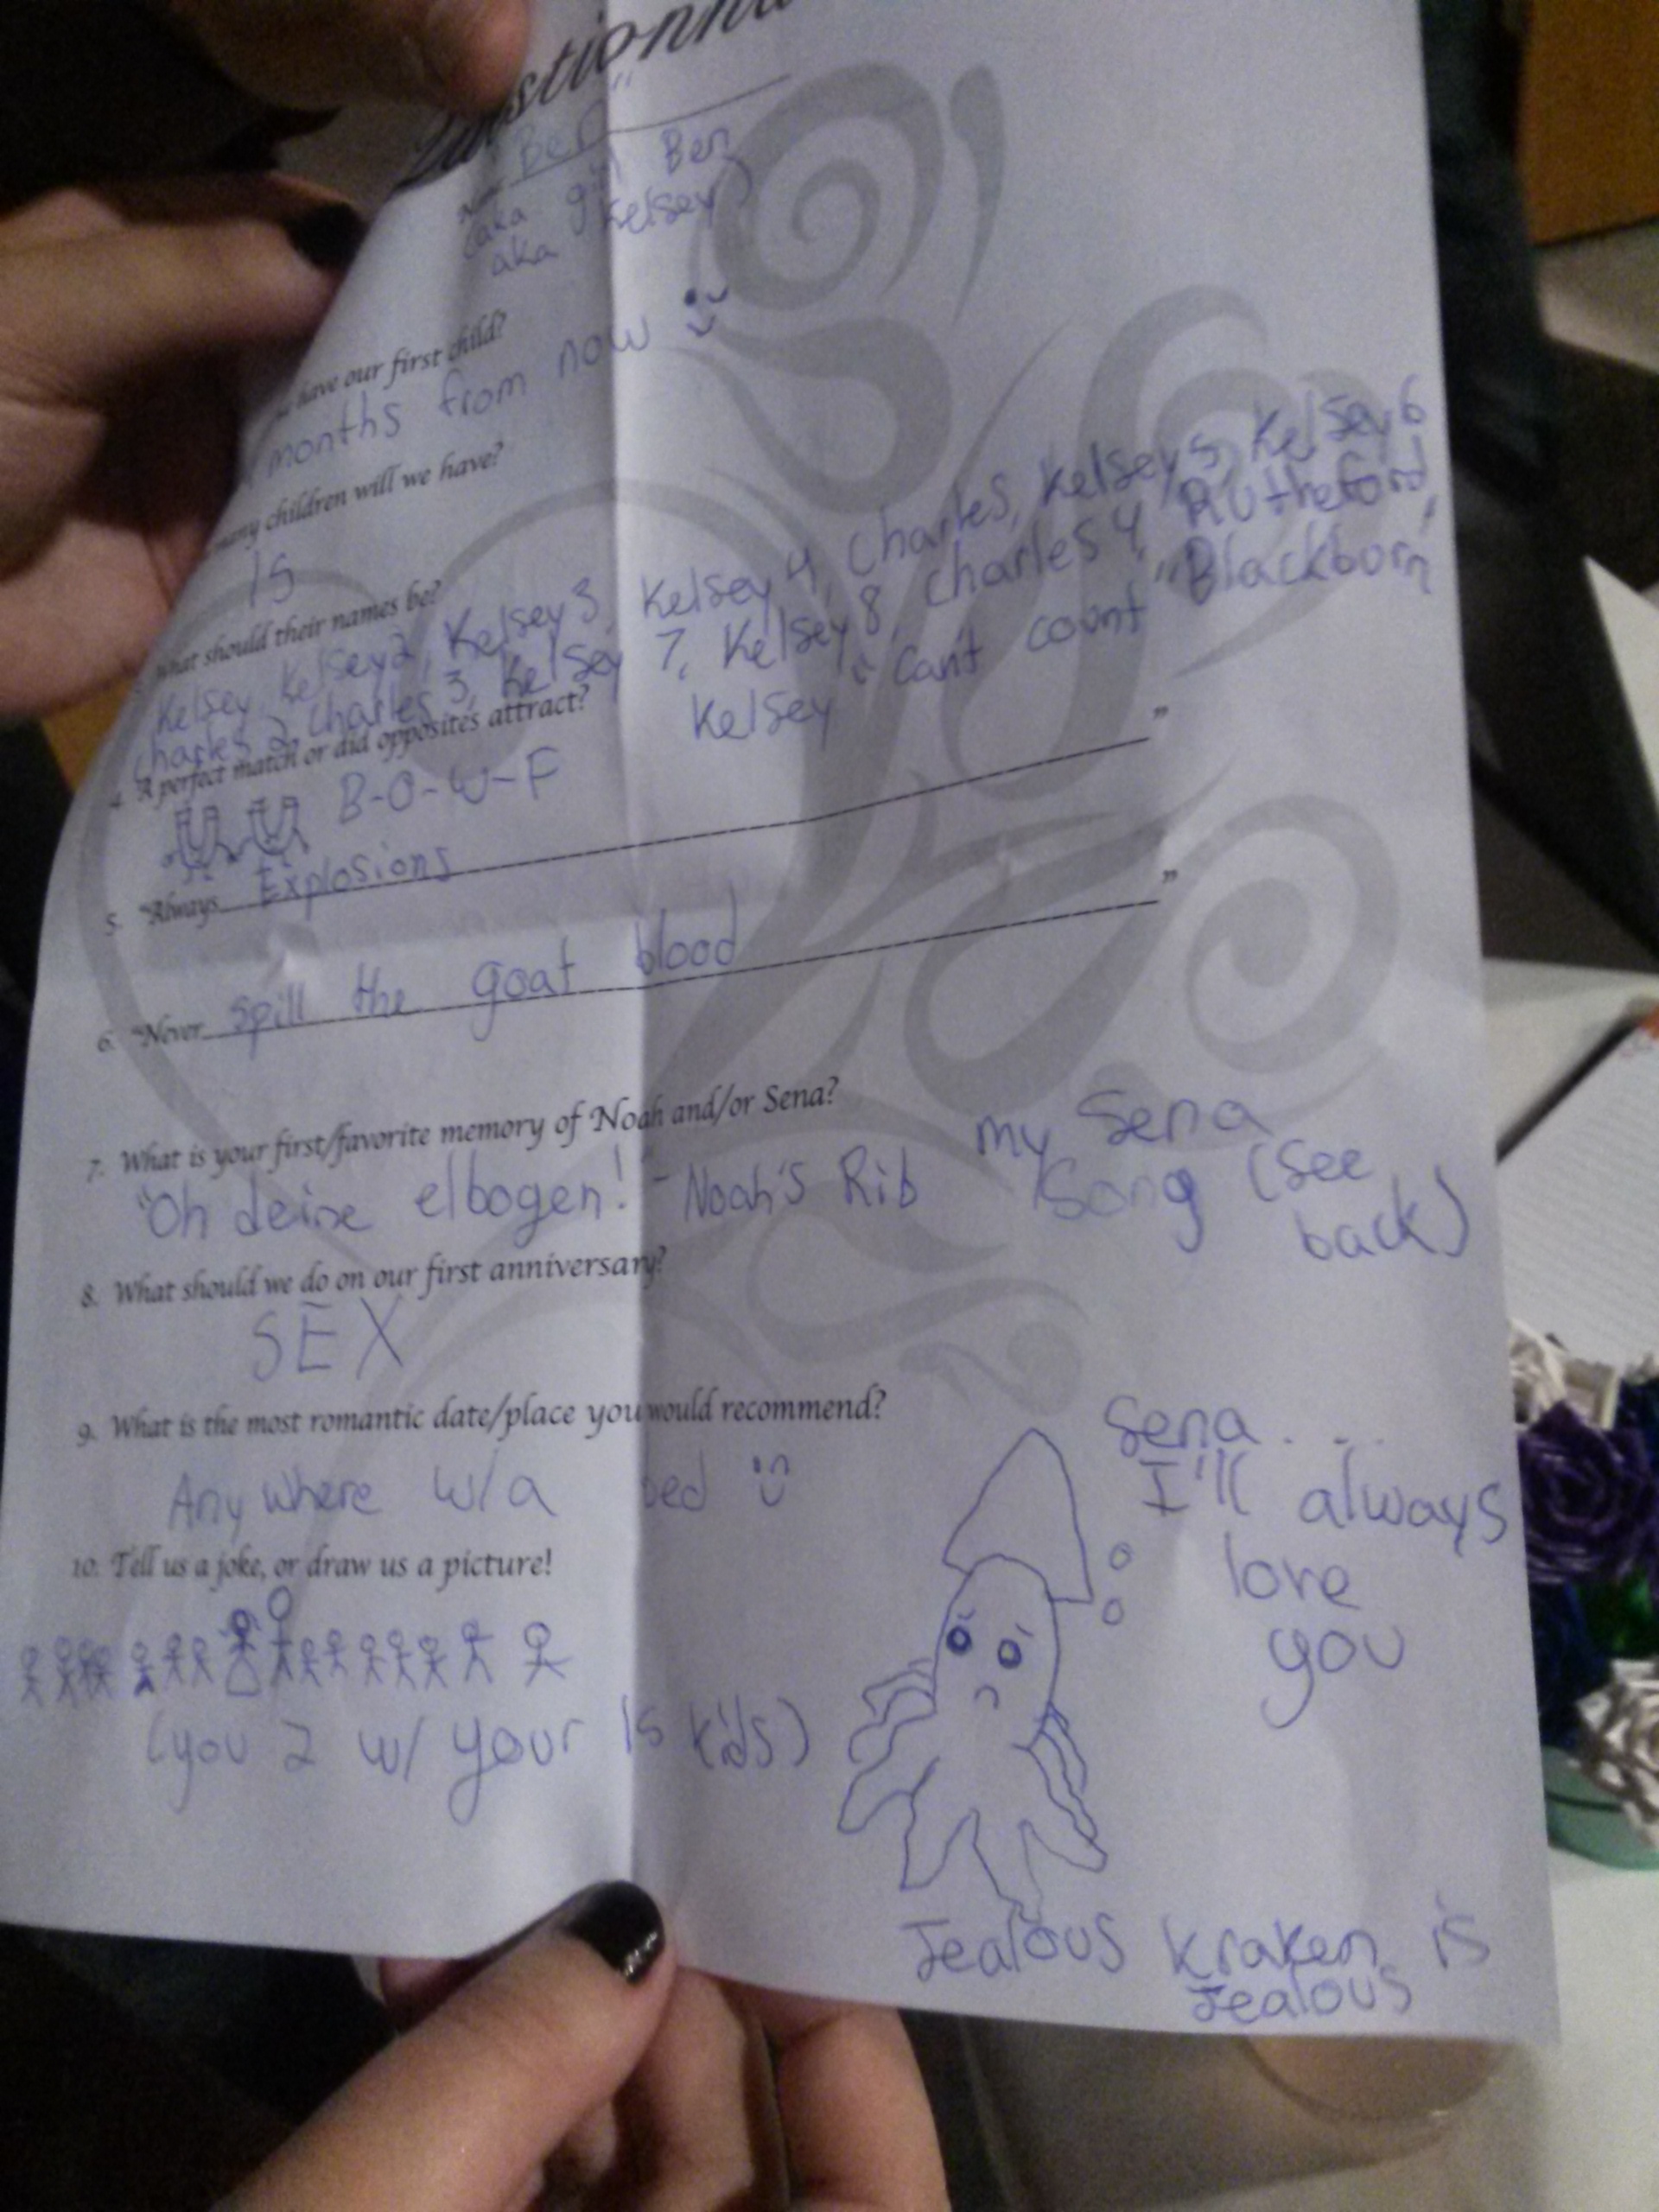 "Ben"
(aka girl Ben
aka Kelsey)
have our first child?
months from now
many children will we have?
15
What should their names be?
Kelsey, Kelsey 2, Kelsey 3, Kelsey 4, Charles, Kelsey 5, Kelsey 6
Charles 2, Charles 3, Kelsey 7, Kelsey 8, Charles 4, Rutheford,
Kelsey "Can't count" Blackborn
4. A perfect match or did opposites attract?
B-O-W-F
5. "Always Explosions"
6. "Never spill the goat blood"
7. What is your first/favorite memory of Noah and/or Sena?
"Oh deine elbogen!" - Noah's Rib
my Sena
Song (see
back)
8. What should we do on our first anniversary?
SEX
9. What is the most romantic date/place you would recommend?
Any where w/a bed
10. Tell us a joke, or draw us a picture!
(you 2 w/ your 15 kids)
Sena....
I'll always
love
you
Jealous kraken is
Jealous